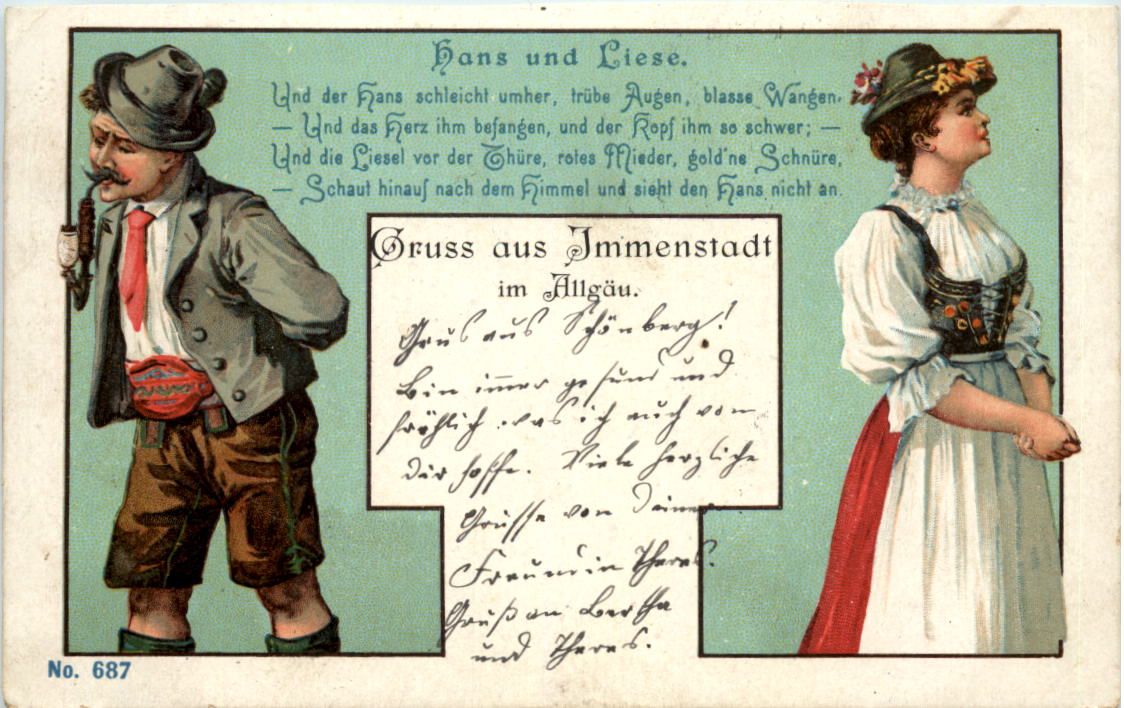 Hans und Liese.
Und der Hans schleicht umher, trübe Augen, blasse Wangen,
— Und das Herz ihm befangen, und der Kopf ihm so schwer; —
Und die Liesel vor der Thüre, rotes Mieder, gold'ne Schnüre,
— Schaut hinauf nach dem Himmel und sieht den Hans nicht an.
Gruss aus Immenstadt
im Allgäu.
Grus aus Schönberg!
Bin immer gesund und
fröhlich was ich auch von
dir hoffe. Viele herzliche
Grüsse von deiner
Freundin Theres.
Gruß an Bertha
und Theres.
No. 687